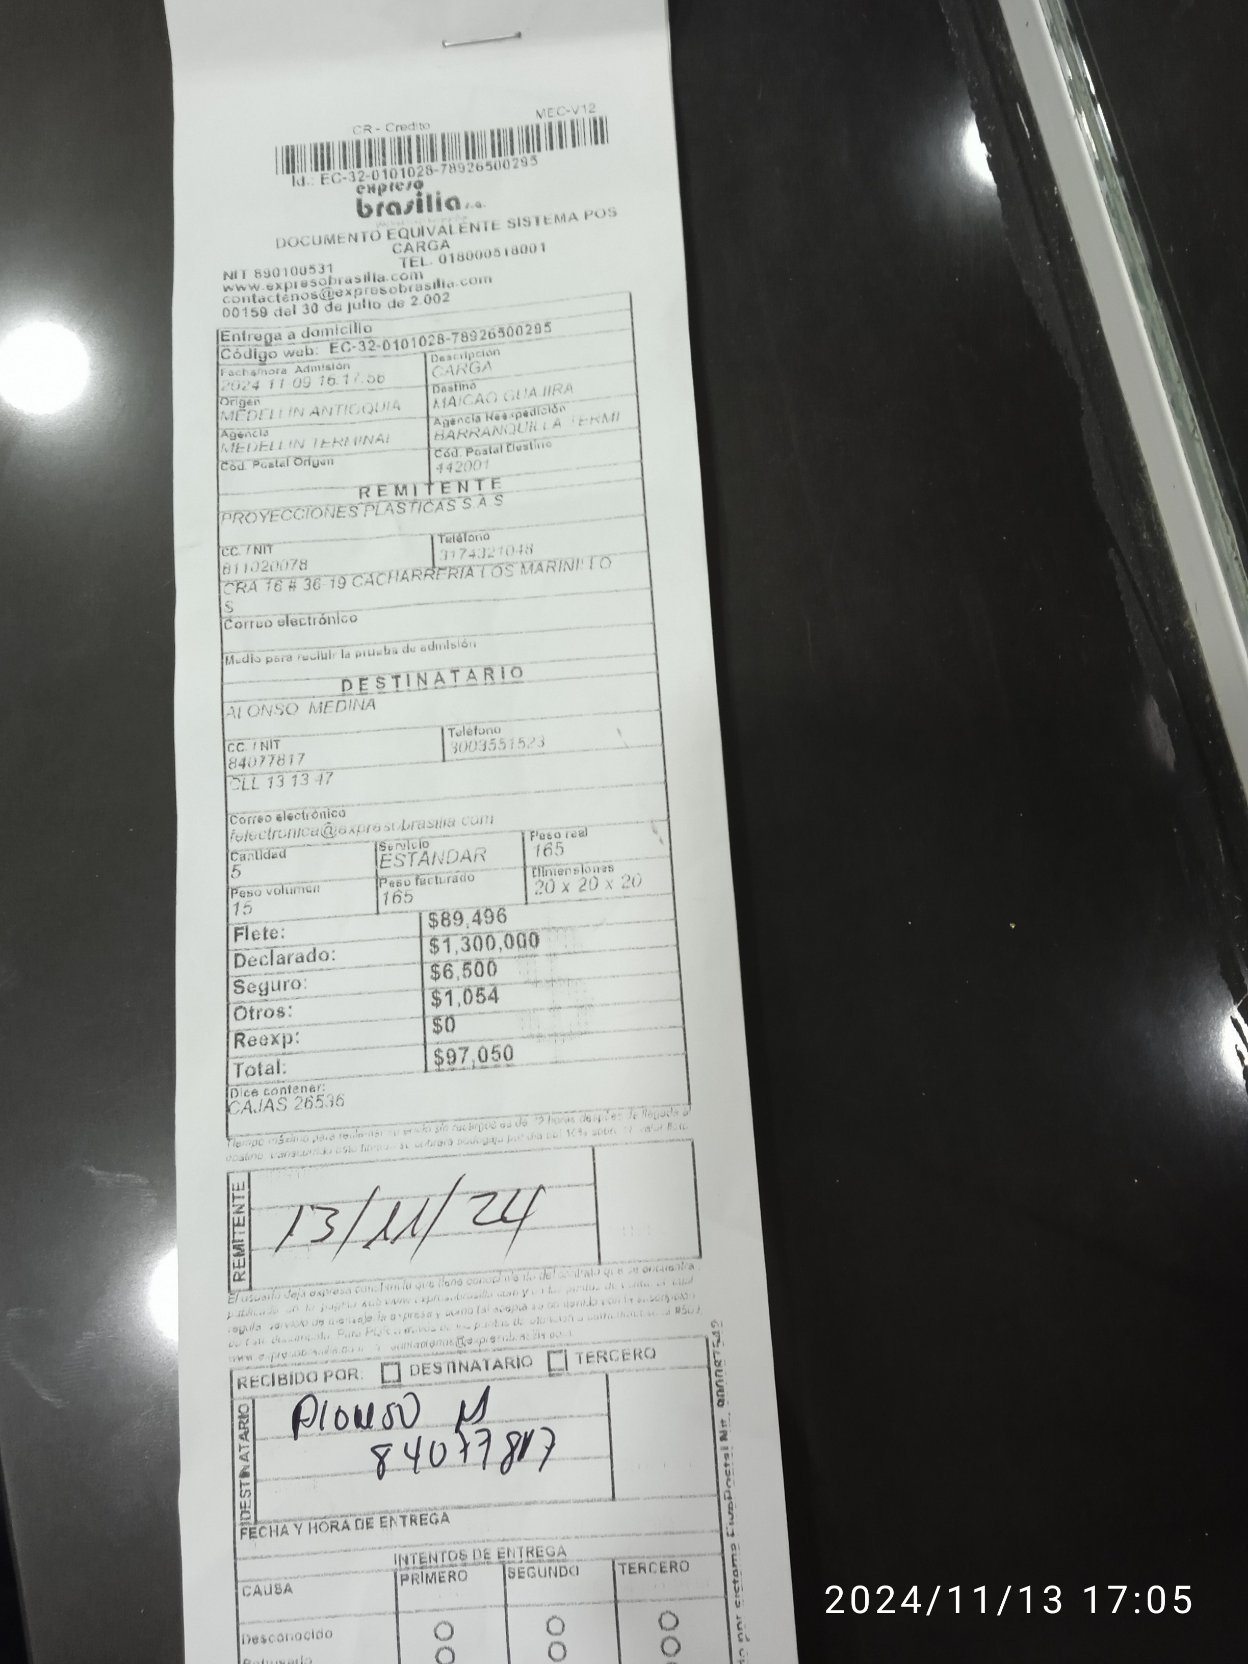 CR - Credito
MEC-V12
Id.: EC-32-0101028-78926500295
expreso
brasilia s.a.
DOCUMENTO EQUIVALENTE SISTEMA POS
CARGA
NIT 890100531
TEL. 018000518001
www.expresobrasilia.com
contactenos@expresobrasilia.com
00159 del 30 de julio de 2.002
Entrega a domicilio
Código web: EC-32-0101028-78926500295
Fecha/hora Admisión
2024 11 09 16:17:56
Descripción
CARGA
Origen
MEDELLIN ANTIOQUIA
Destino
MAICAO GUAJIRA
Agencia
MEDELLIN TERMINAL
Agencia Reexpedición
BARRANQUILLA TERMI
Cód. Postal Origen
Cód. Postal Destino
442001
REMITENTE
PROYECCIONES PLASTICAS S A S
CC. / NIT
811020078
Teléfono
3174321048
CRA 16 # 36 19 CACHARRERIA LOS MARINILLO
S
Correo electrónico
Medio para recibir la prueba de admisión
DESTINATARIO
ALONSO MEDINA
CC. / NIT
84077817
Teléfono
3003551523
CLL 13 13 47
Correo electrónico
felectronica@expresobrasilia.com
Cantidad
5
Servicio
ESTANDAR
Peso real
165
Peso volumen
15
Peso facturado
165
Dimensiones
20 x 20 x 20
Flete: $89,496
Declarado: $1,300,000
Seguro: $6,500
Otros: $1,054
Reexp: $0
Total: $97,050
Dice contener:
CAJAS 26536
REMITENTE
13/11/24
RECIBIDO POR: DESTINATARIO TERCERO
DESTINATARIO
Alonso M
84077817
FECHA Y HORA DE ENTREGA
INTENTOS DE ENTREGA
CAUSA PRIMERO SEGUNDO TERCERO
Desconocido
Rehusado
2024/11/13 17:05